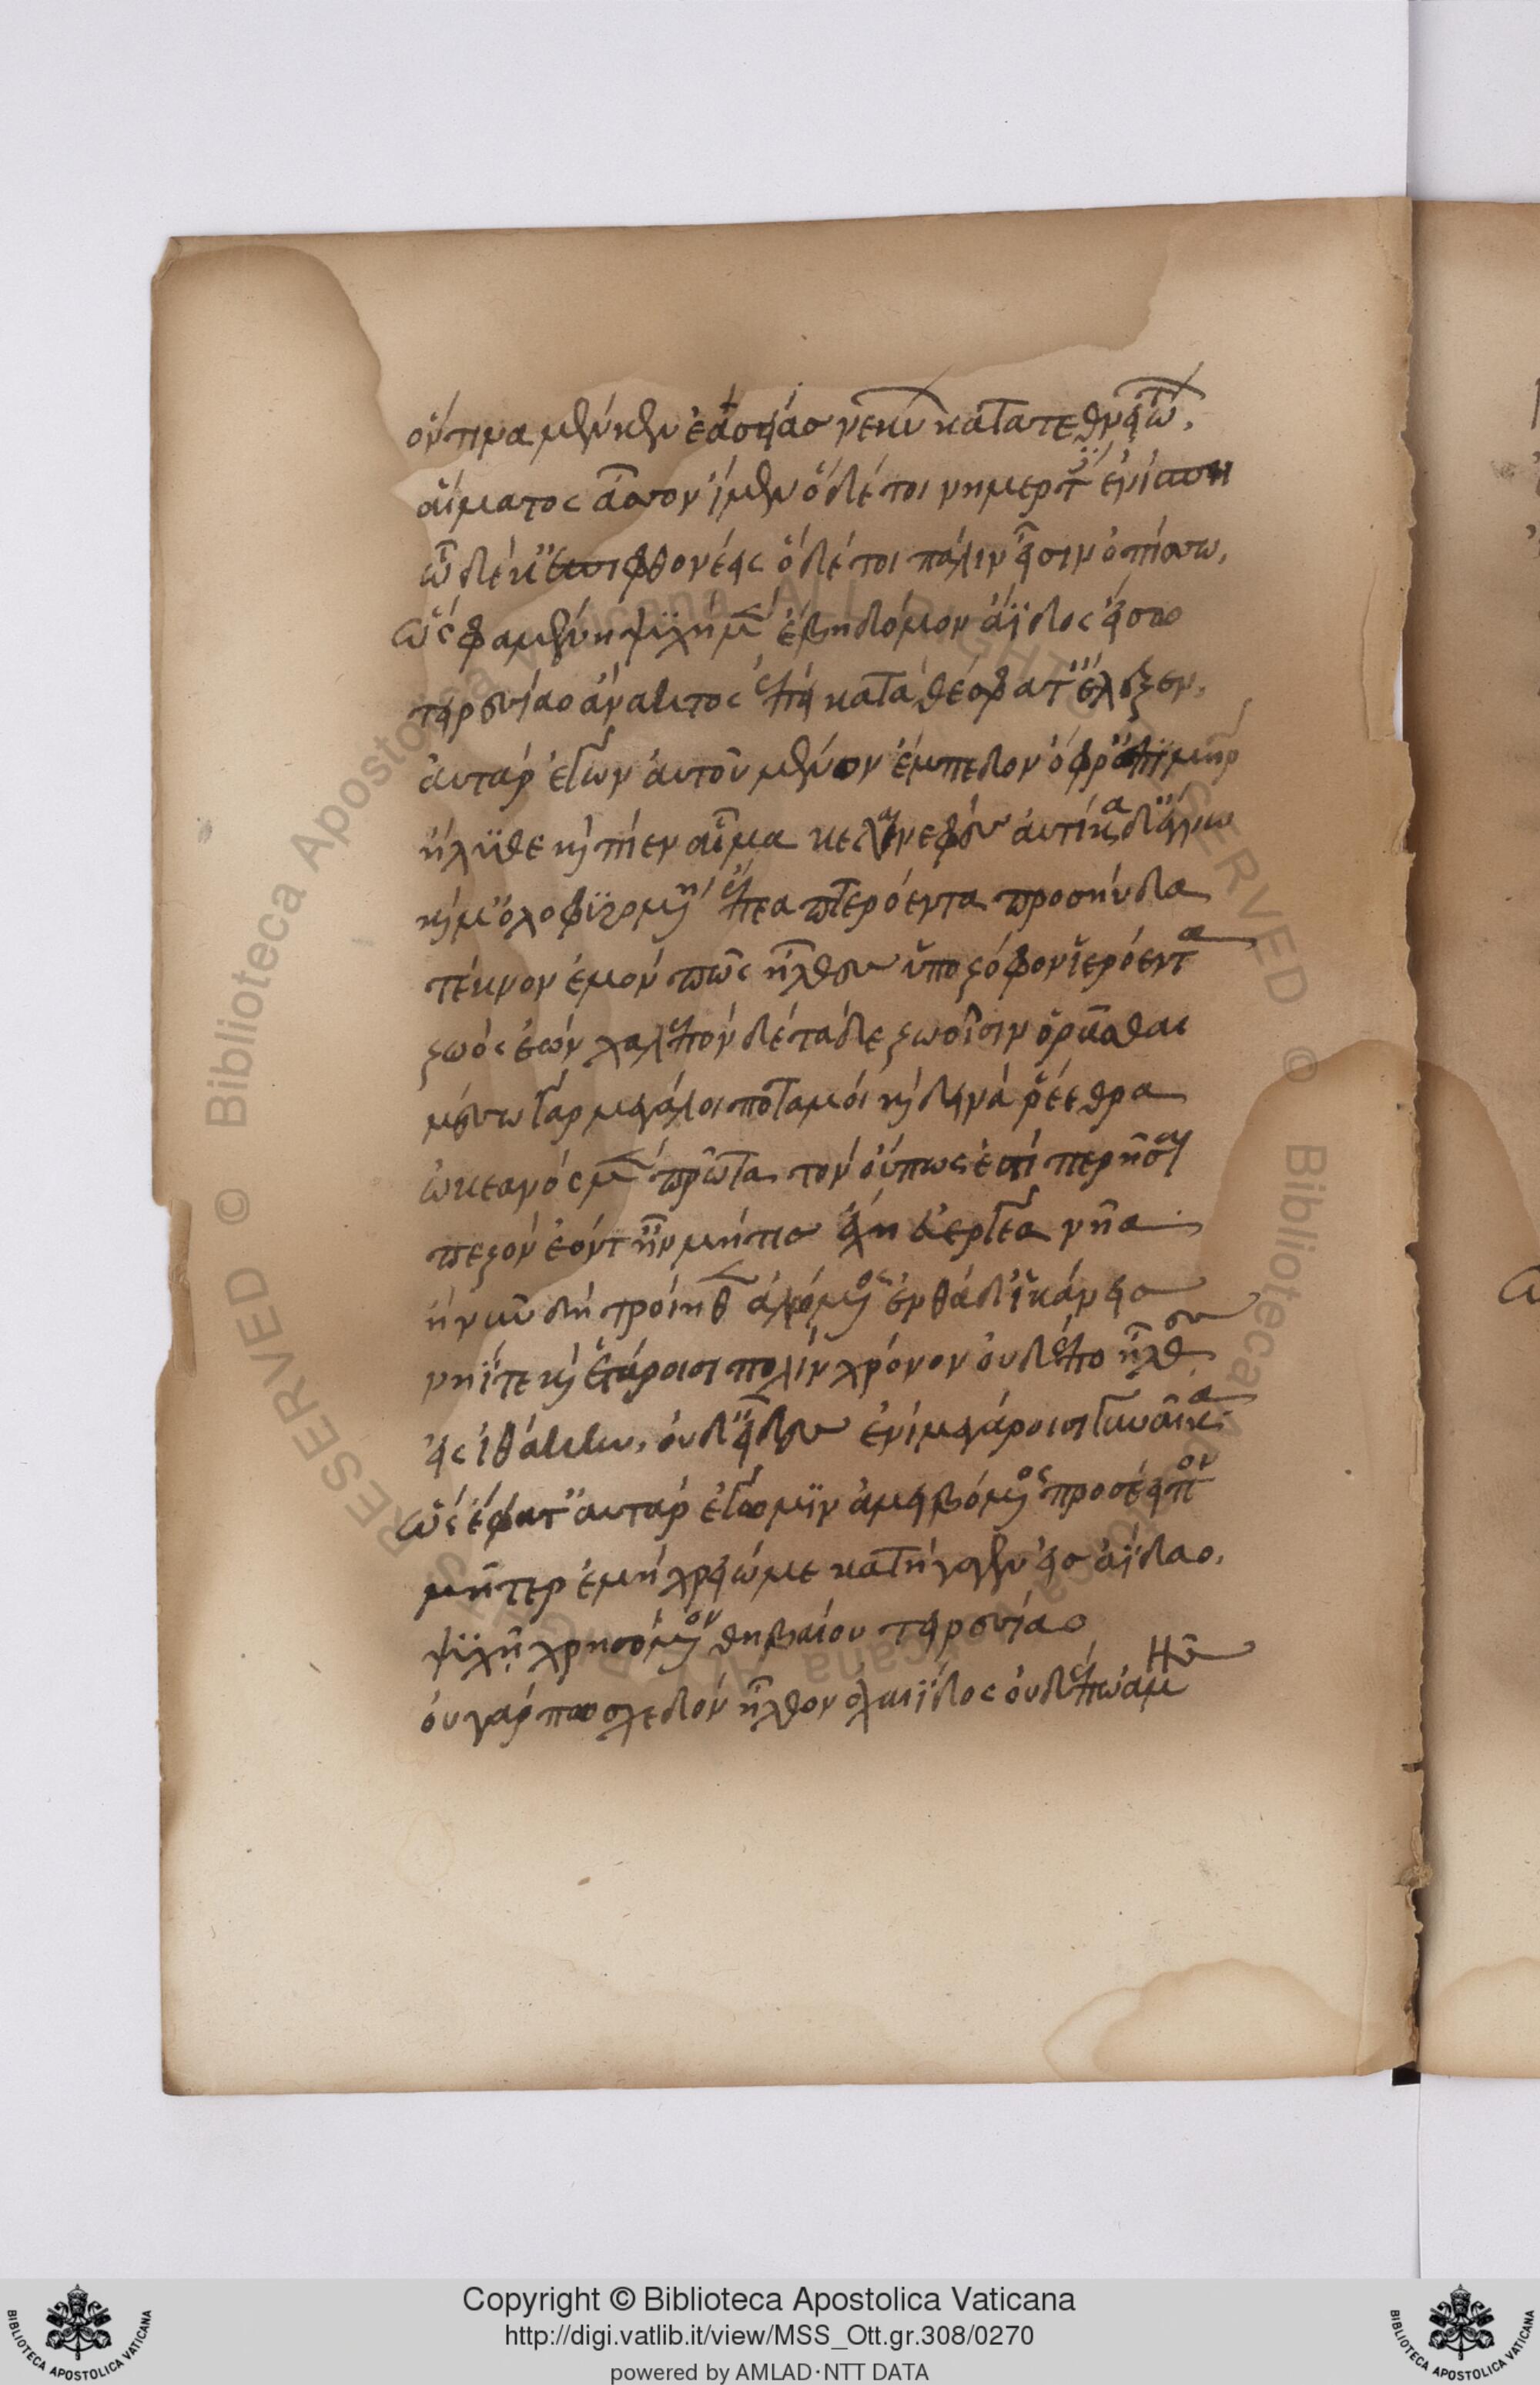 ὅν τινα μέν κεν ἐᾶς νεκύων κατατεθνειώτων,
αἵματος ἆσσον ἴμεν ὁ δέ τοι νημερτὲς ἐνίψει
ὧ δέ κ' ἐπιφθονέεις ὁ δέ τοι πάλιν εἶσιν ὀπίσσω,
ὣς φαμένη ψυχὴ μὲν ἔβη δόμον ἄϊδος εἴσω
τειρεσίαο ἄνακτος ἐπεὶ κατὰ θέσφατ' ἔλεξεν,
αὐτὰρ ἐγὼν αὐτοῦ μένον ἔμπεδον ὄφρ' ἐπὶ μήτηρ
ἤλυθε καὶ πίεν αἷμα κελαινεφές αὐτίκα δ' ἔγνω
καί μ' ὀλοφυρομένη ἔπεα πτερόεντα προσηύδα
τέκνον ἐμόν πῶς ἦλθες ὑπὸ ζόφον ἠερόεντα
ζωός ἐών χαλεπόν δὲ τάδε ζωοῖσιν ὁρᾶσθαι
μέσσω γὰρ μεγάλοι ποταμοί καὶ δεινά ῥέεθρα
ὠκεανός μὲν πρῶτα τόν οὔπως ἐστί περῆσαι
πεζόν ἐόντ' ἢν μή τις ἔχη εὐεργέα νῆα
ἢ νῦν δή τροίηθεν ἀλώμενος ἐνθάδ' ἱκάνεις
νηΐ τε καὶ ἑτάροισι πολύν χρόνον οὐδέ πω ἦλθες
εἰς ἰθάκην, οὐδ' εἶδες ἐνί μεγάροισι γυναῖκα
ὣς ἔφατ' αὐτὰρ ἐγώ μιν ἀμειβόμενος προσέειπον
μῆτερ ἐμή χρειώ με κατήγαγεν εἰς ἀΐδαο,
ψυχῇ χρησόμενον θηβαίου τειρεσίαο
οὐ γάρ πω σχεδόν ἦλθον ἀχαιΐδος οὐδέ πω ἀμῆς
Copyright © Biblioteca Apostolica Vaticana
http://digi.vatlib.it/view/MSS_Ott.gr.308/0270
powered by AMLAD·NTT DATA